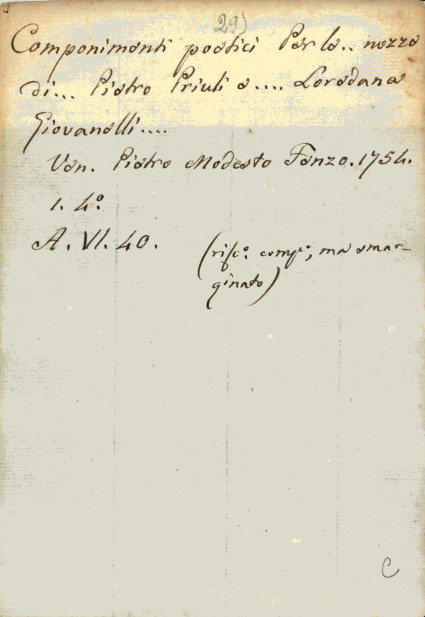 29)
Componimenti poetici Per le.. nozze
di... Pietro Priuli e.... Loredana
Giovanelli....
Ven. Pietro Modesto Fenzo. 1754.
1. 4°.
A. VI. 40.
(risc°. comp°, ma smar-
ginato)
C